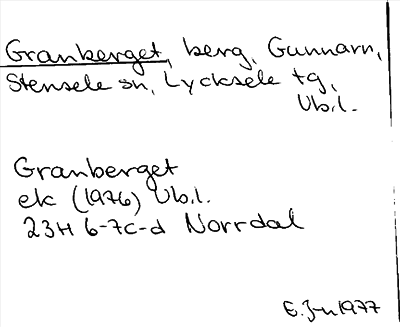 Granberget, berg, Gunnarn,
Stensele sn, Lycksele tg,
Vb.l.
Granberget
ek (1976) Vb.l.
23H 6-7c-d Norrdal
E. Jn 1977